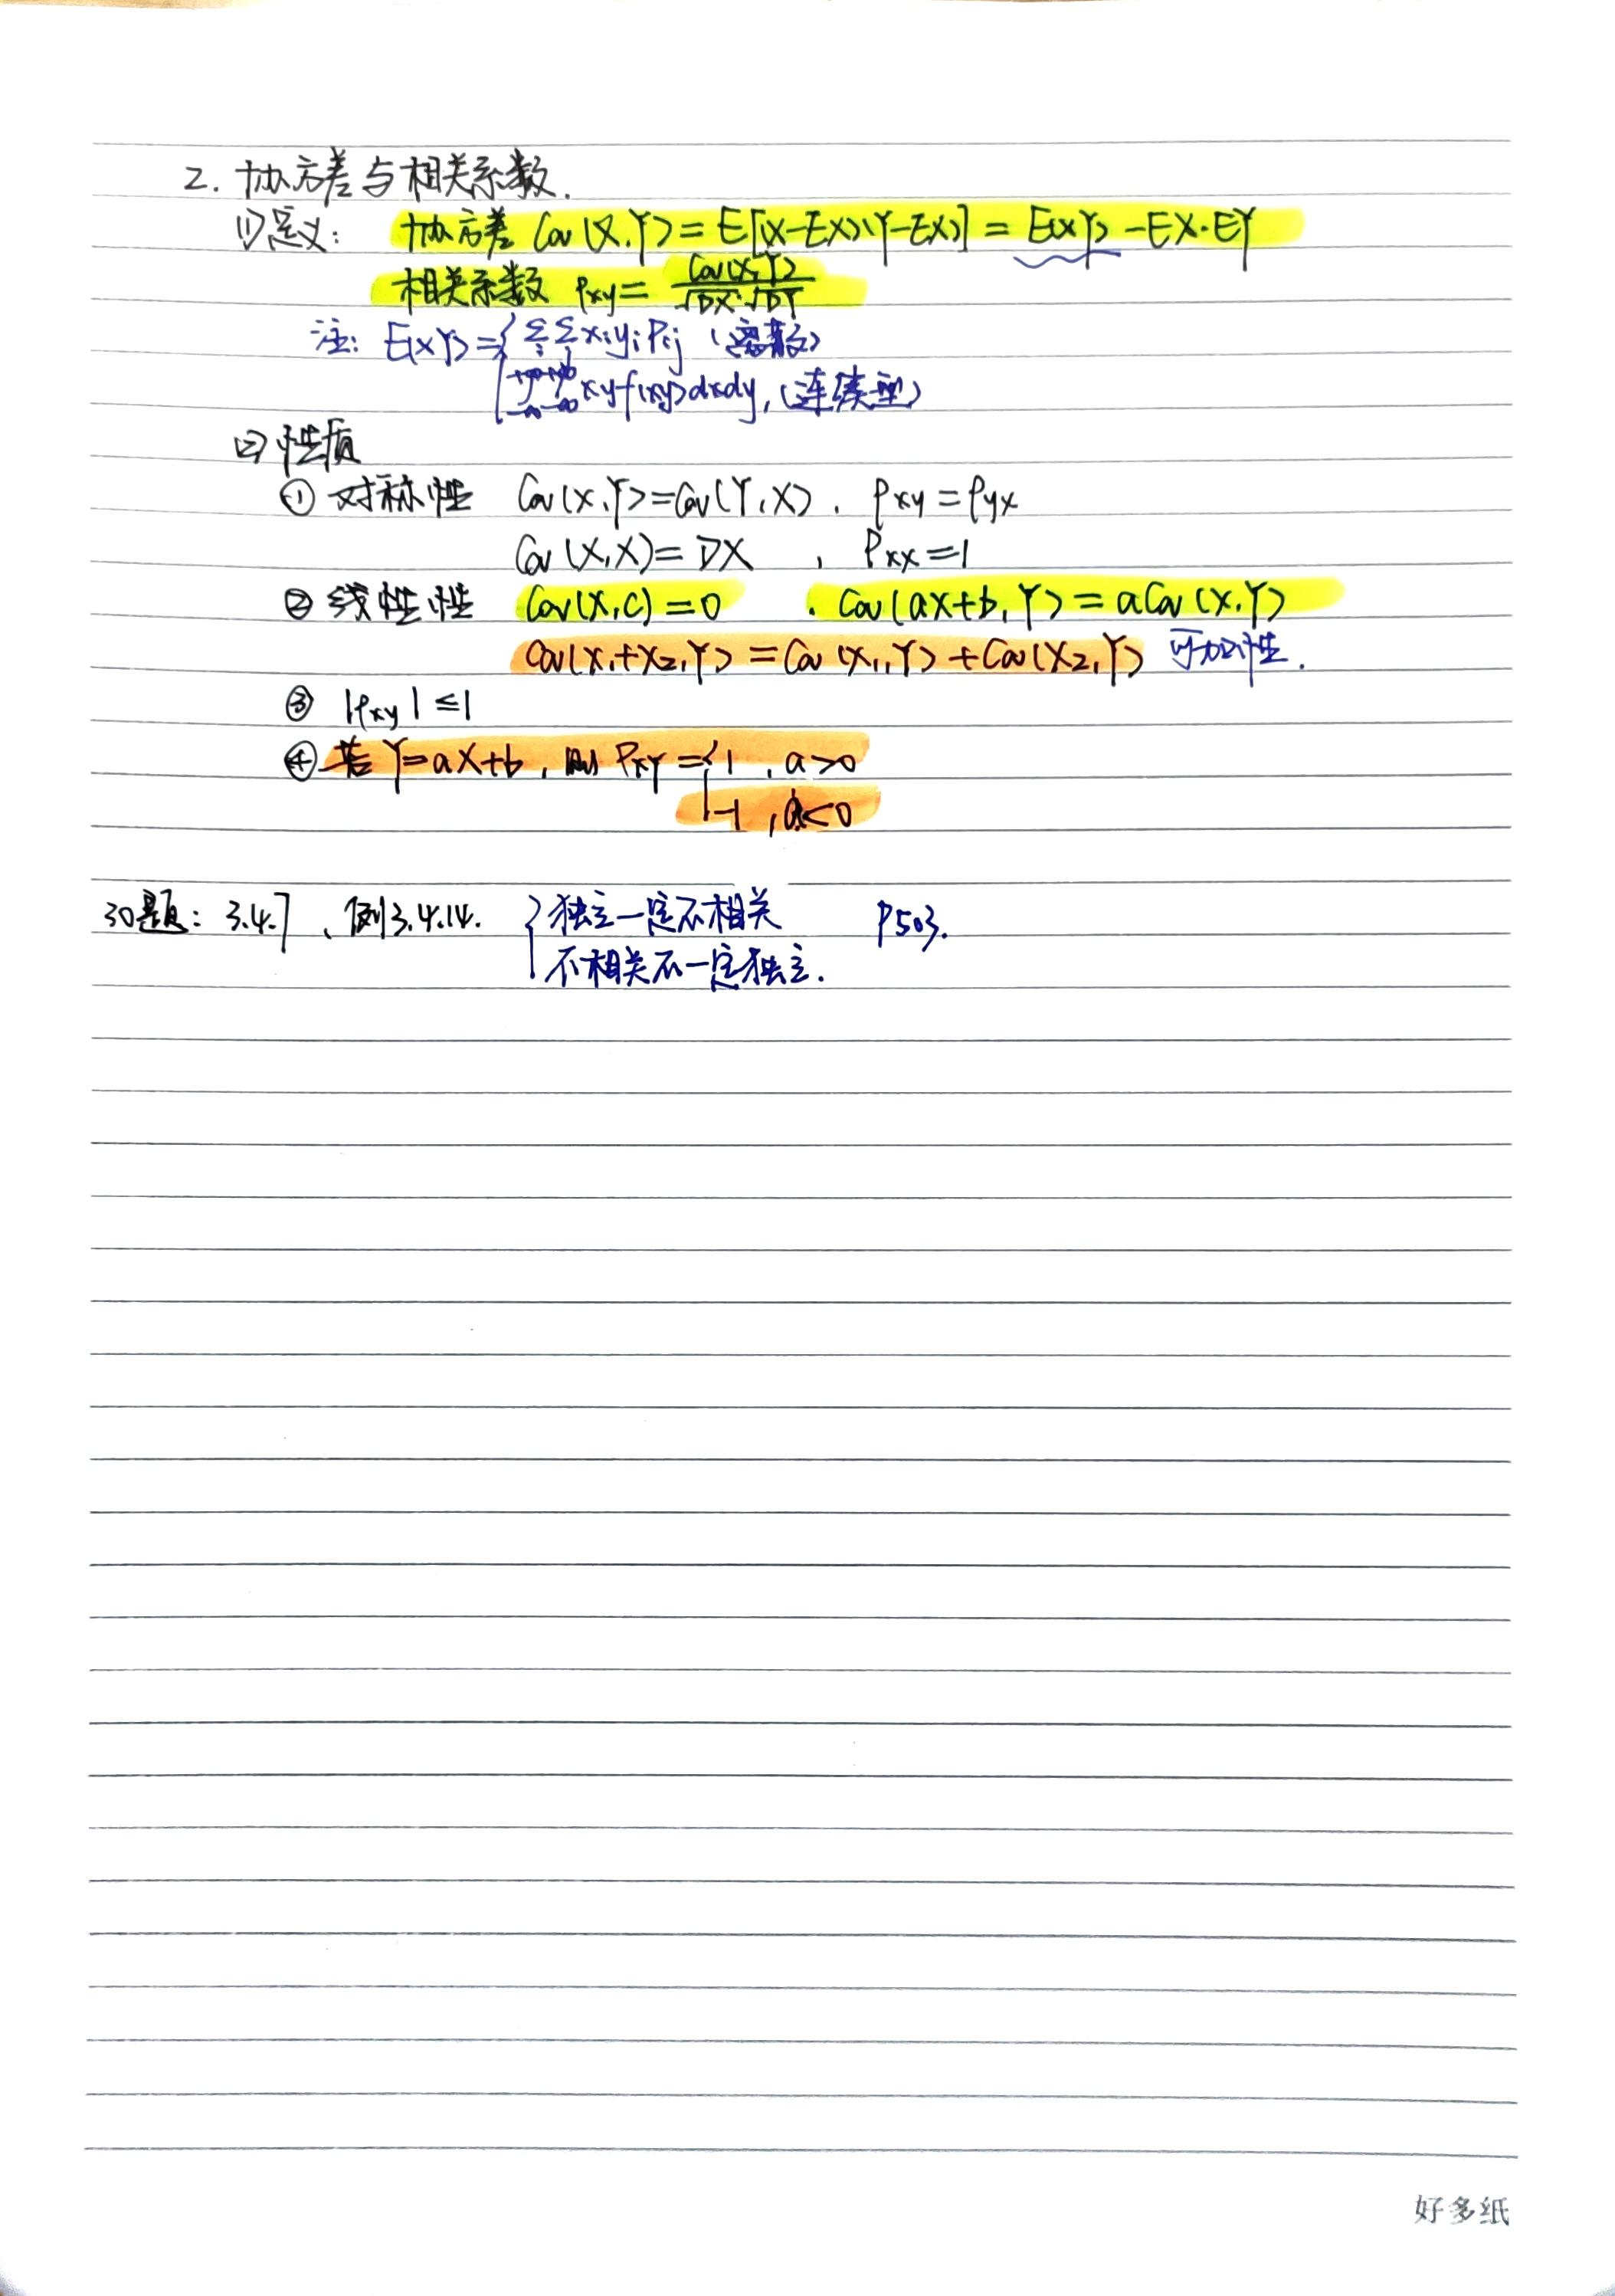 2. 协方差与相关系数.
(1)定义: 协方差 Cov(X,Y)=E[(X-EX)(Y-EX)]=E(XY)-EX·EY
相关系数 ρxy=Cov(X,Y)/√DX·√DY
注: E(XY)={∑i∑j xiyjPij (离散)
∫+∞-∞∫+∞-∞ xyf(xy)dxdy, (连续型)
(2)性质
① 对称性 Cov(X,Y)=Cov(Y,X), ρxy=ρyx
Cov(X,X)=DX , ρxx=1
② 线性性 Cov(X,C)=0 , Cov(aX+b,Y)=aCov(X,Y)
Cov(X1+X2,Y)=Cov(X1,Y)+Cov(X2,Y) 可加性.
③ |ρxy|≤1
④ 若Y=aX+b, 则ρXY={1, a>0
-1, a<0
30题: 3.4.7、例3.4.14. {独立一定不相关 P503.
不相关不一定独立.
好多纸